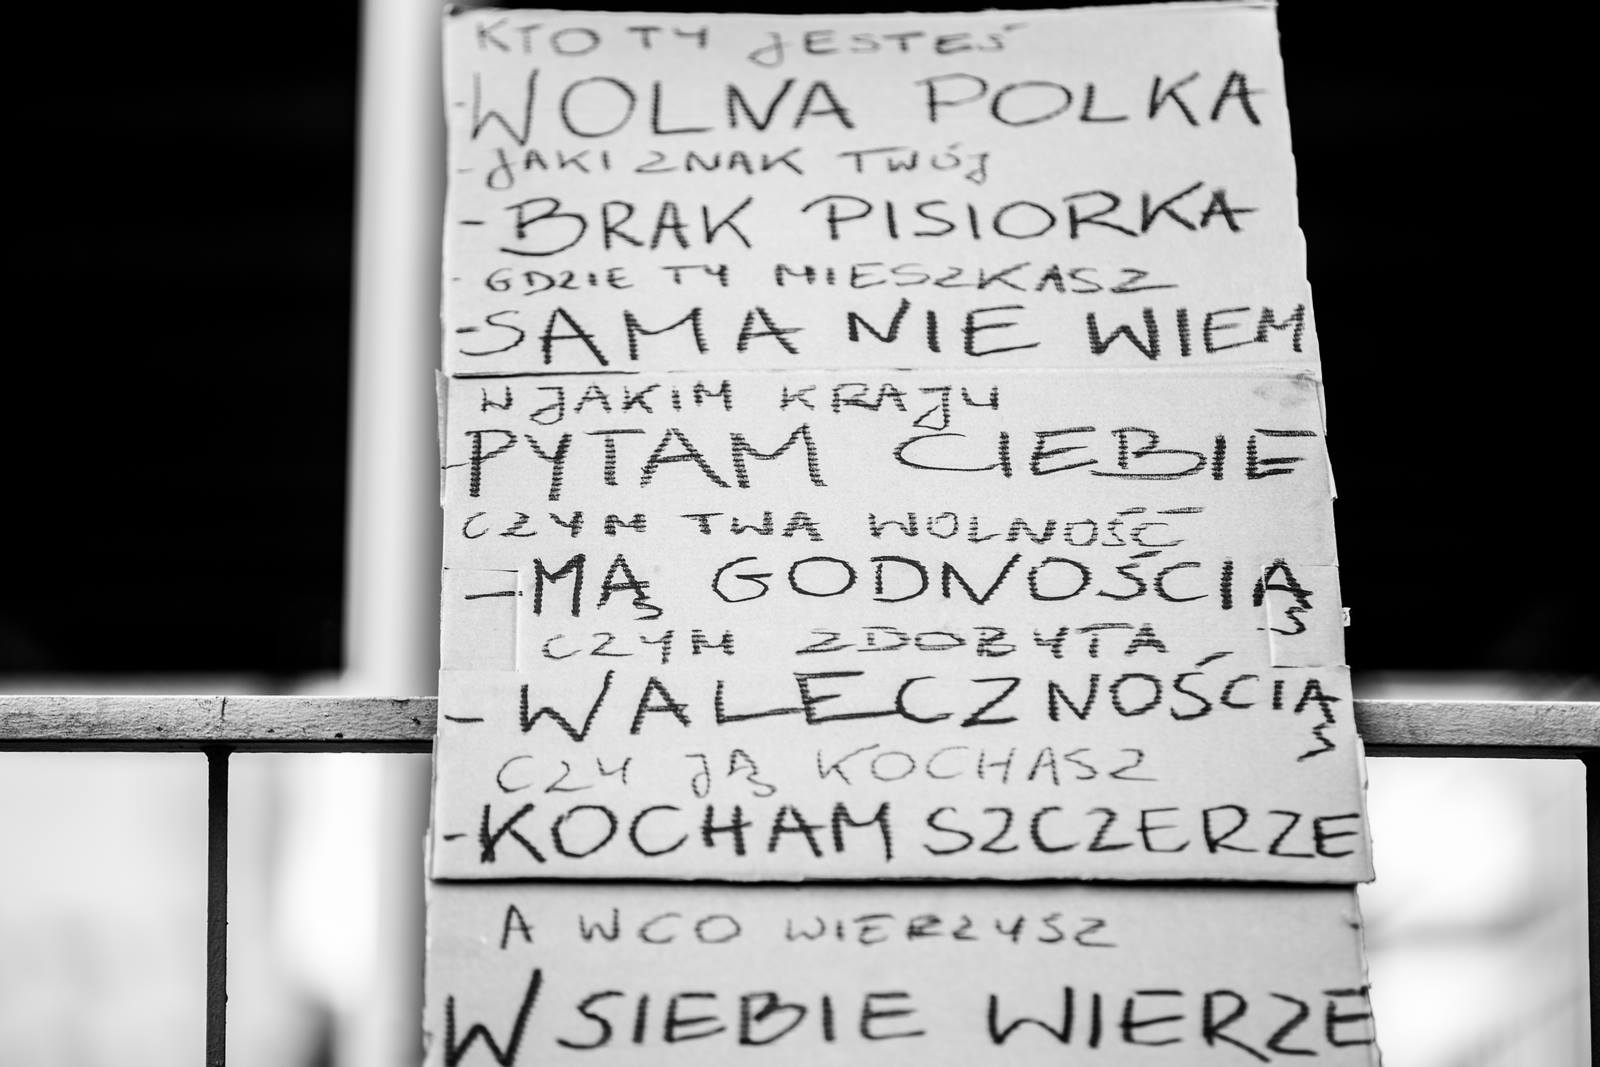 KTO TY JESTEŚ
-WOLNA POLKA
-JAKI ZNAK TWÓJ
-BRAK PISIORKA
-GDZIE TY MIESZKASZ
-SAMA NIE WIEM
W JAKIM KRAJU
-PYTAM CIEBIE
CZYM TWA WOLNOŚĆ
-MĄ GODNOŚCIĄ
CZYM ZDOBYTA
-WALECZNOŚCIĄ
CZY JĄ KOCHASZ
-KOCHAM SZCZERZE
A W CO WIERZYSZ
W SIEBIE WIERZE